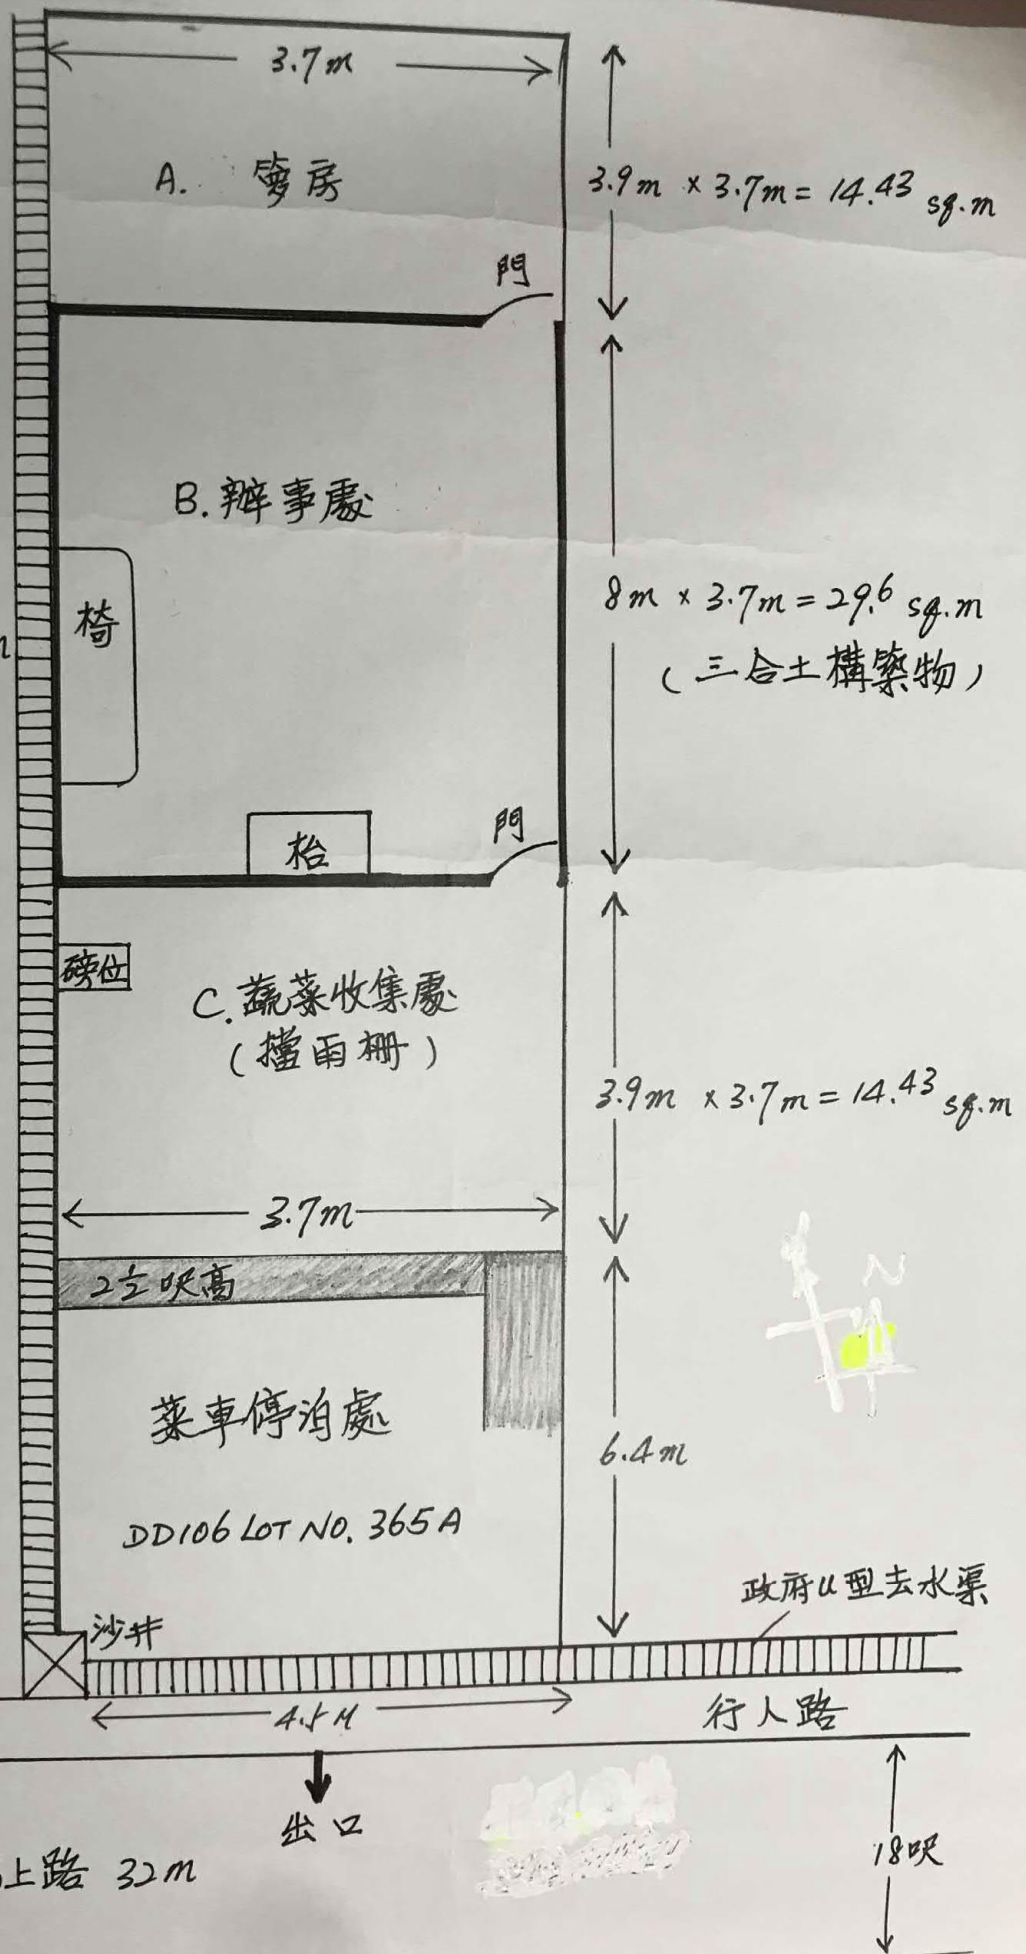 3.7m
A. 籮房
3.9m × 3.7m = 14.43 sq.m
門
B. 辦事處
椅
8m × 3.7m = 29.6 sq.m
(三合土構築物)
枱
門
磅位
C. 蔬菜收集處
(擋雨柵)
3.9m × 3.7m = 14.43 sq.m
3.7m
2½呎高
菜車停泊處
6.4m
DD106 LOT NO. 365A
政府U型去水渠
沙井
4.5M
行人路
出口
18呎
上路 32m